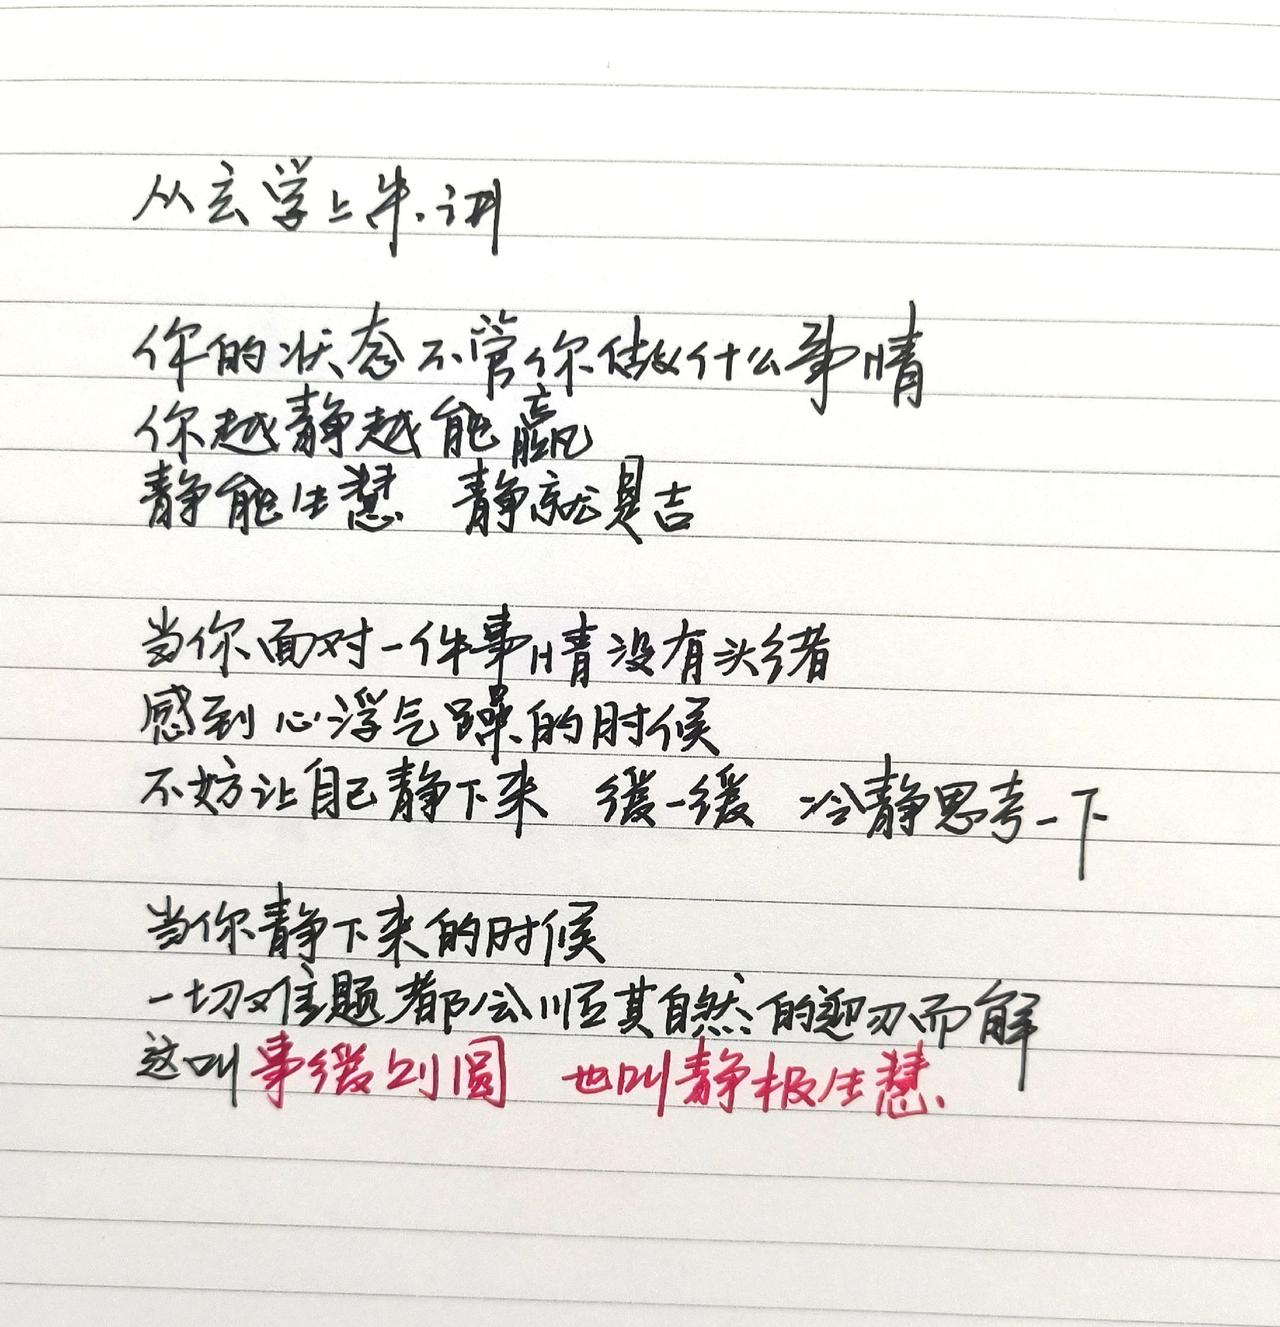 从玄学上来讲
你的状态不管你做什么事情
你越静越能赢
静能生慧 静就是吉
当你面对一件事情没有头绪
感到心浮气躁的时候
不妨让自己静下来 缓一缓 冷静思考一下
当你静下来的时候
一切难题都会顺其自然的迎刃而解
这叫事缓则圆 也叫静极生慧.